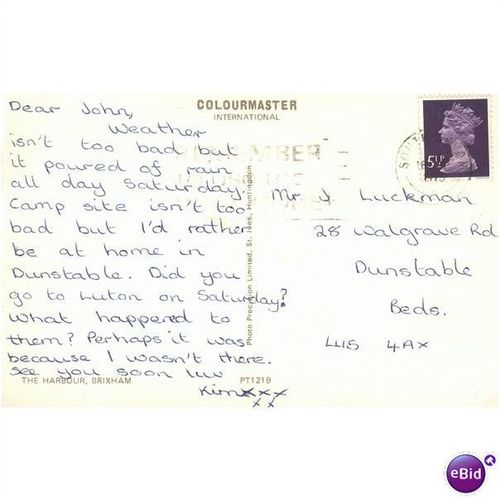 Dear John,
Weather
isn't too bad but
it poured of rain
all day saturday.
Camp site isn't too
bad but I'd rather
be at home in
Dunstable. Did you
go to Luton on Saturday?
What happened to
them? Perhaps it was
because I wasn't there.
see you soon luv
Kimxxx
xx
THE HARBOUR, BRIXHAM
PT1219
COLOURMASTER
INTERNATIONAL
Photo Precision Limited, St. Ives, Huntingdon
REMEMBER
5½P
Mr J. Luckman
28 Walgrave Rd
Dunstable
Beds.
LU5 4AX
eBid